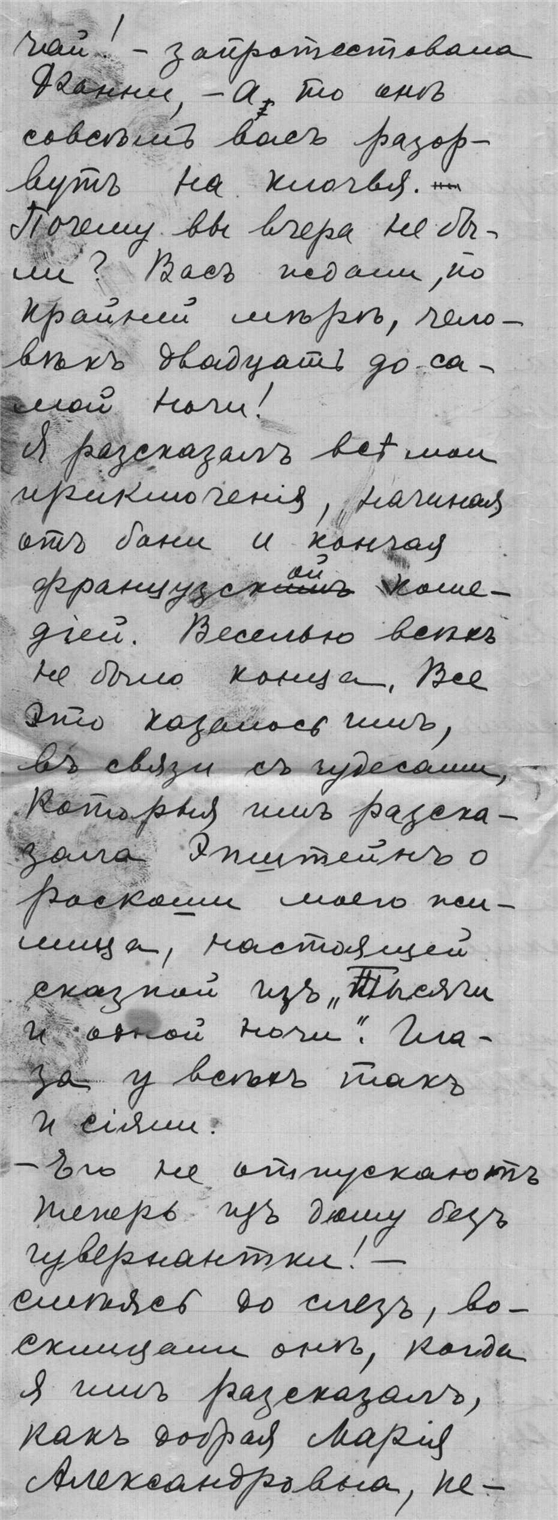 чай! – запротестовала
Жанни, – А то онѣ
совсѣмъ васъ разор-
вутъ на клочья. –
Почему вы вчера не бы-
ли? Васъ ждали, по
крайней мѣрѣ, чело-
вѣкъ двадцать до са-
мой ночи!
Я разсказалъ всѣ мои
приключенія, начиная
отъ бани и кончая
французской коме-
діей. Веселью всѣхъ
не было конца. Все
это казалось имъ,
въ связи съ чудесами,
которыя имъ разска-
зала Эпштейнъ о
роскоши моего жи-
лища, настоящей
сказкой изъ „Тысячи
и одной ночи". Гла-
за у всѣхъ такъ
и сіяли.
– Его не отпускаютъ
теперь изъ дому безъ
гувернантки! –
смѣясь до слезъ, во-
склицали онѣ, когда
я имъ разсказалъ,
какъ добрая Марія
Александровна, не-